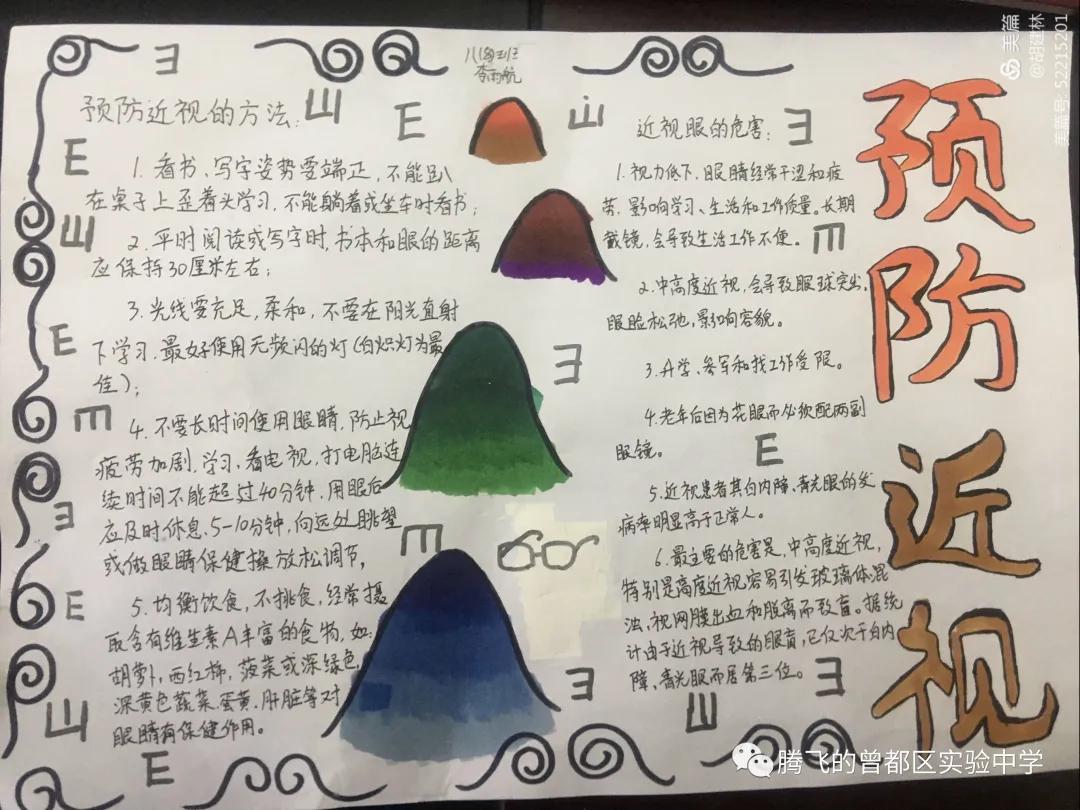 预防近视
李雨航
预防近视的方法:
1. 看书、写字姿势要端正,不能趴
在桌子上歪着头学习,不能躺着或坐车时看书;
2. 平时阅读或写字时,书本和眼的距离
应保持30厘米左右;
3. 光线要充足,柔和,不要在阳光直射
下学习,最好使用无频闪的灯(白炽灯为最
佳);
4. 不要长时间使用眼睛,防止视
疲劳加剧,学习,看电视,打电脑连
续时间不能超过40分钟,用眼后
应及时休息,5-10分钟,向远处眺望
或做眼睛保健操放松调节,
5. 均衡饮食,不挑食,经常摄
取含有维生素A丰富的食物,如:
胡萝卜,西红柿,菠菜或深绿色,
深黄色蔬菜.蛋黄.肝脏等对
眼睛有保健作用。
近视眼的危害:
1. 视力低下,眼睛经常干涩和疲
劳,影响学习、生活和工作质量。长期
戴镜,会导致生活工作不便。
2. 中高度近视,会导致眼球突出,
眼脸松弛,影响容貌。
3. 升学、参军和找工作受限。
4. 老年后因为花眼而必须配两副
眼镜。
5. 近视患者其白内障、青光眼的发
病率明显高于正常人。
6. 最主要的危害是,中高度近视,
特别是高度近视容易引发玻璃体混
浊,视网膜出血和脱离而致盲。据统
计由于近视导致的眼盲,已仅次于白内
障、青光眼而居第三位。
E
E
E
E
E
E
E
美篇
@胡建林
美篇号: 52215201
腾飞的曾都区实验中学